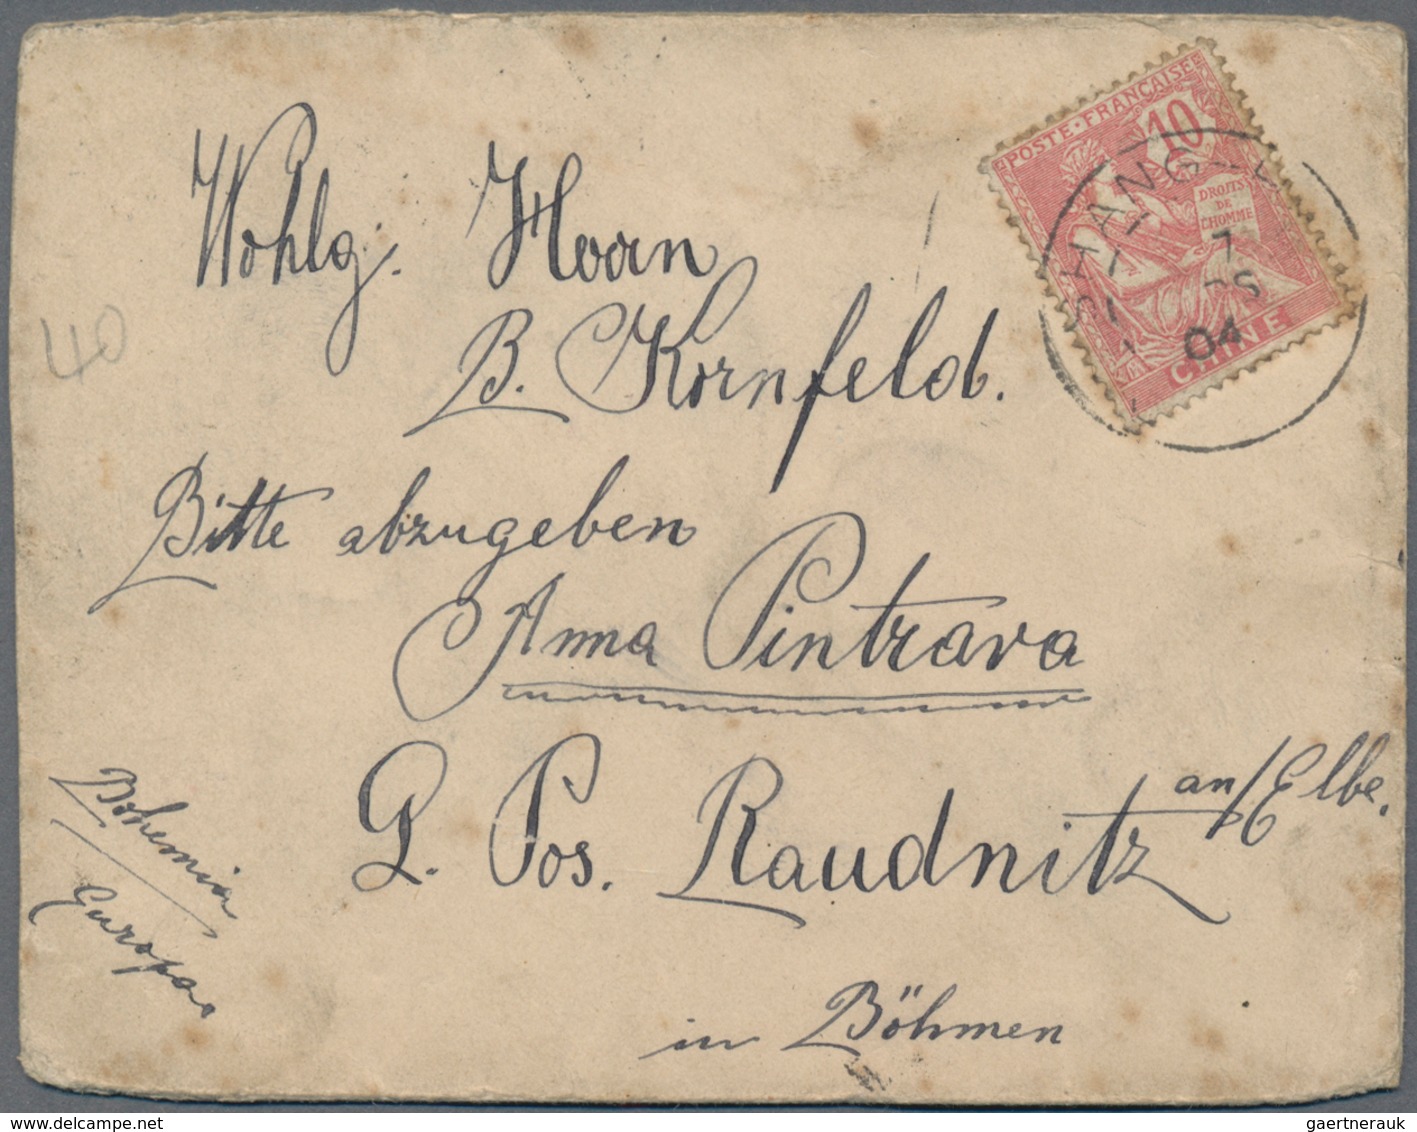 POSTE · FRANÇAISE
10
DROITS
DE
L'HOMME
CHINE
SHANG
7
04
Wohlg. Herrn
B. Kornfeld.
Bitte abzugeben
Anna Pintrava
L. Pos. Raudnitz an/Elbe.
in Böhmen
Bohemia
Europa
40
gaertnerauk@delcampe.net